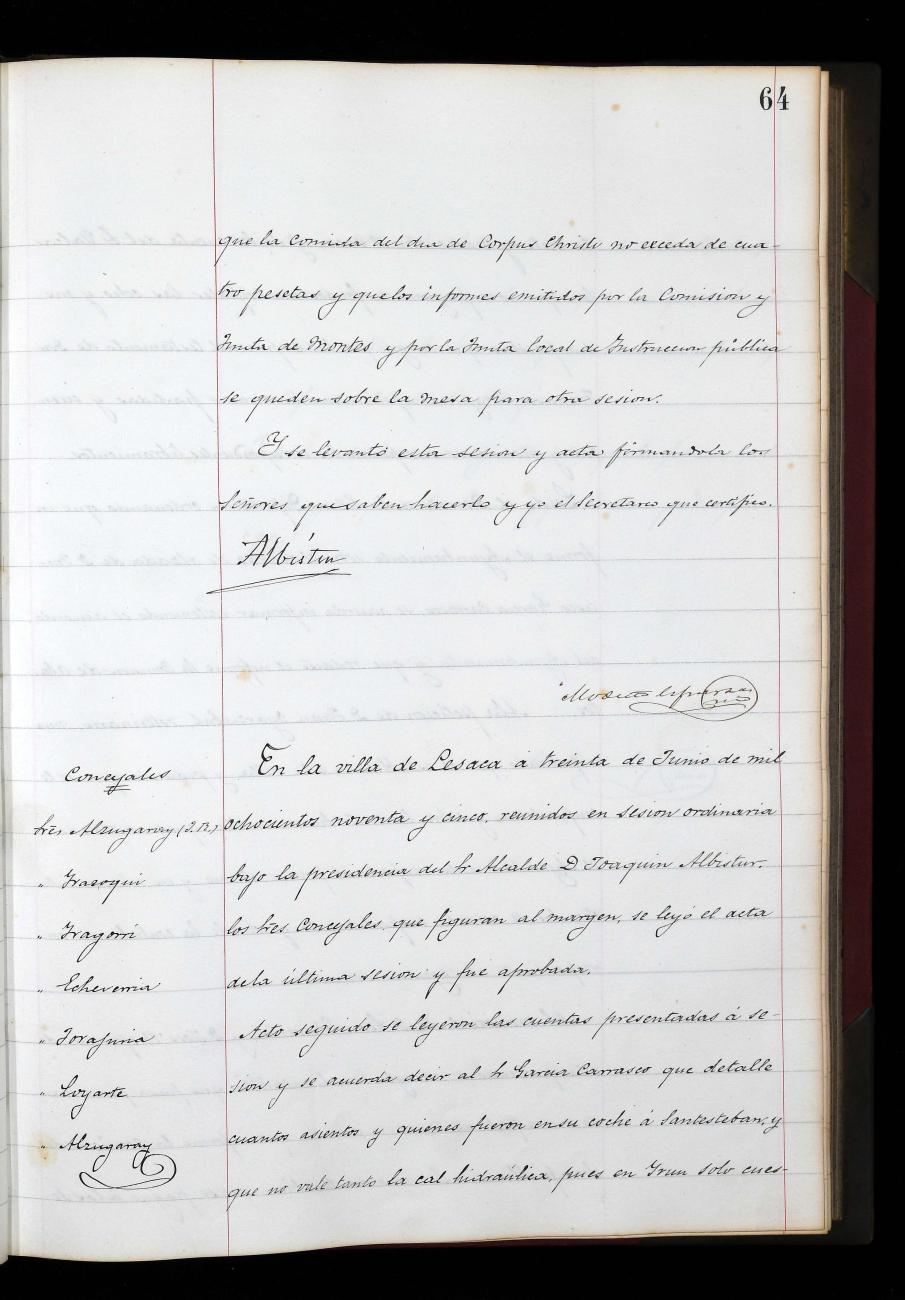 64
que la comida del dia de Corpus Christi no exceda de cua-
tro pesetas y que los informes emitidos por la Comision y
Junta de Montes y por la Junta local de Instruccion pública
se queden sobre la mesa para otra sesion.
Y se levantó esta sesion y acta firmandola los
Señores que saben hacerlo y yo el Secretario que certifico.
Albistur
Concejales
Sres Alzugaray (J.B.)
" Irazoqui
" Iragorri
" Echeverria
" Torajuria
" Loyarte
" Alzugaray
En la villa de Lesaca á treinta de Junio de mil
ochocientos noventa y cinco, reunidos en sesion ordinaria
bajo la presidencia del Sr Alcalde D Joaquin Albistur.
los Sres Concejales que figuran al margen, se leyó el acta
de la última sesion y fué aprobada.
Acto seguido se leyeron las cuentas presentadas á se-
sion y se acuerda decir al Sr Garcia Carrasco que detalle
cuantos asientos y quienes fueron en su coche á Santesteban, y
que no vale tanto la cal hidraúlica, pues en Irun solo cues-